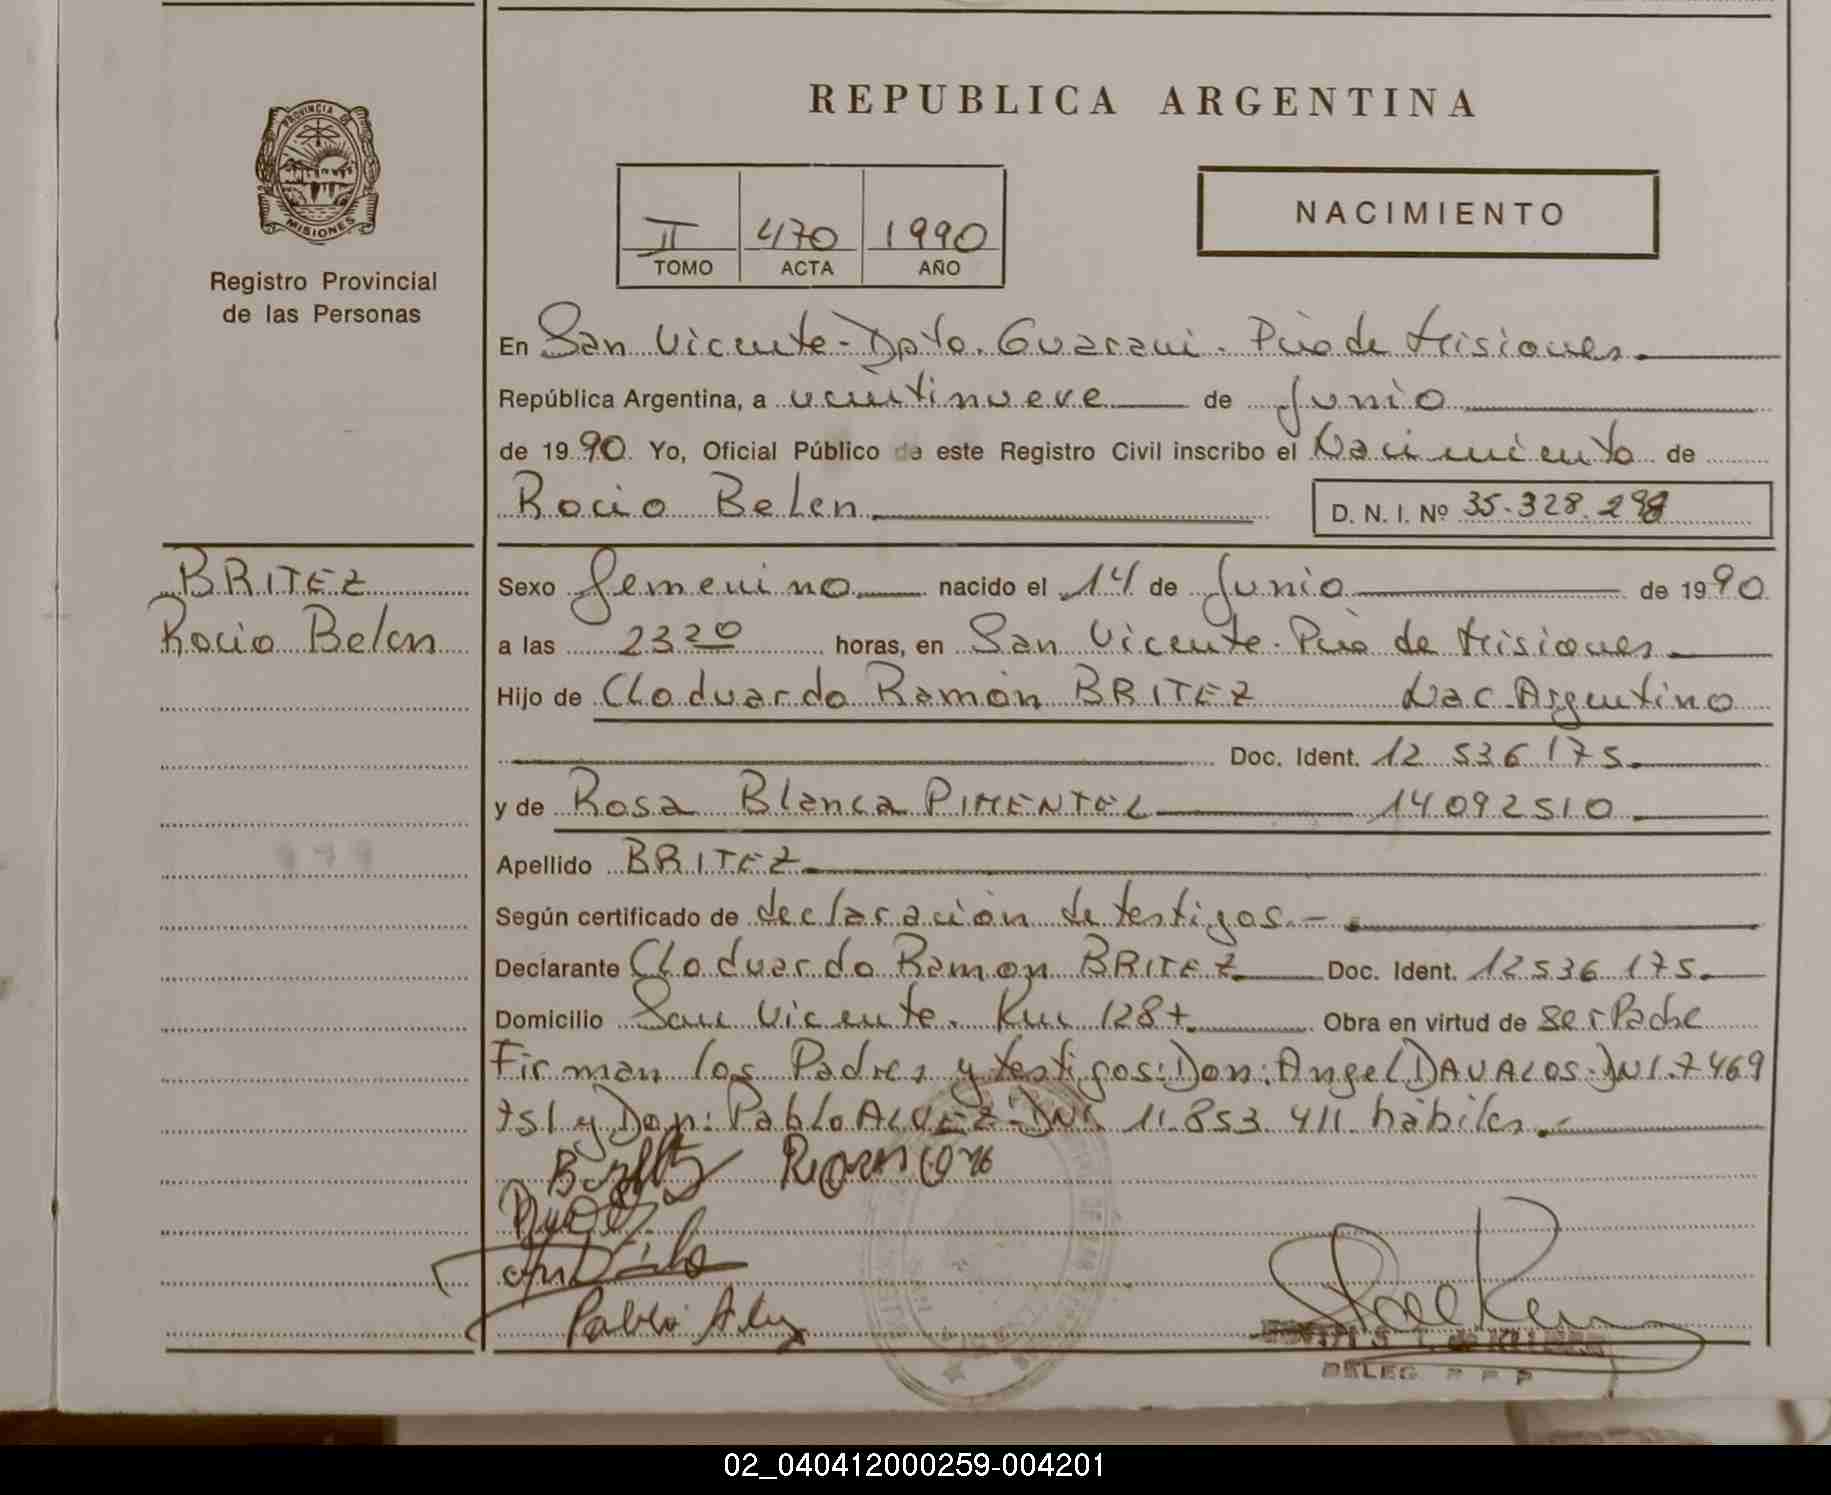 REPUBLICA ARGENTINA
PROVINCIA DE
MISIONES
Registro Provincial
de las Personas
II 470 1990
TOMO ACTA AÑO
NACIMIENTO
En San Vicente - Dpto. Guarani. Pcia de Misiones
República Argentina, a veintinueve de Junio
de 1990 Yo, Oficial Público de este Registro Civil inscribo el Nacimiento de
Rocio Belen
D. N. I. Nº 35.328.298
BRITEZ
Rocio Belen
Sexo femenino nacido el 14 de Junio de 1990
a las 23 20 horas, en San Vicente. Pcia de Misiones
Hijo de Cloduardo Ramón BRITEZ Nac. Argentino
Doc. Ident. 12 536 175
y de Rosa Blanca PIMENTEL 14092510
Apellido BRITEZ
Según certificado de declaración de testigos.-
Declarante Cloduardo Ramon BRITEZ Doc. Ident. 12536 175
Domicilio San Vicente. Km 1287 Obra en virtud de ser Padre
Firman los Padres y testigos: Don: Angel DAVALOS. DNI. 7469
751 y Don: Pablo ALVEZ - DNI 11.853.411 hábiles.-
Pablo
DELEG
02_040412000259-004201